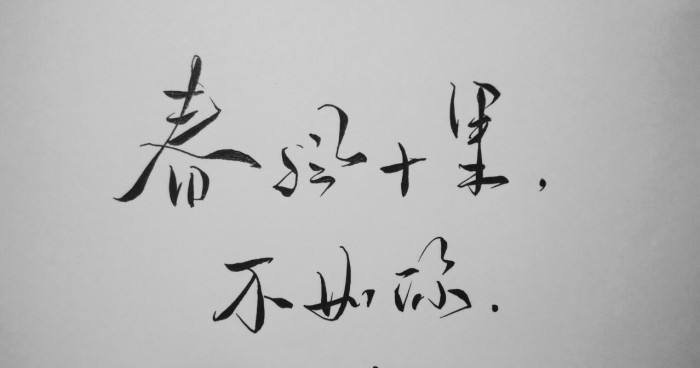 春风十里，
不如你.